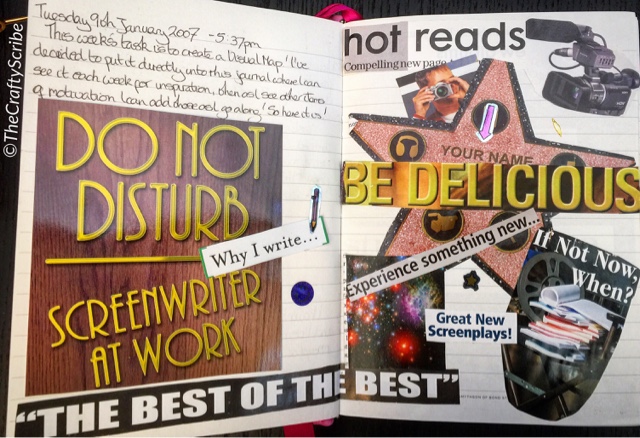 ©TheCraftyScribe
Tuesday 9th January 2007 - 5:37pm
This week's task is to create a Visual Map! I've
decided to put it directly into this journal where I can
see it each week for inspiration, then as I see other items
of motivation I can add those as I go along! So here it is!
DO NOT
DISTURB
SCREENWRITER
AT WORK
Why I write...
hot reads
Compelling new page
YOUR NAME
BE DELICIOUS
Experience something new...
If Not Now,
When?
Great New
Screenplays!
"THE BEST OF THE BEST"